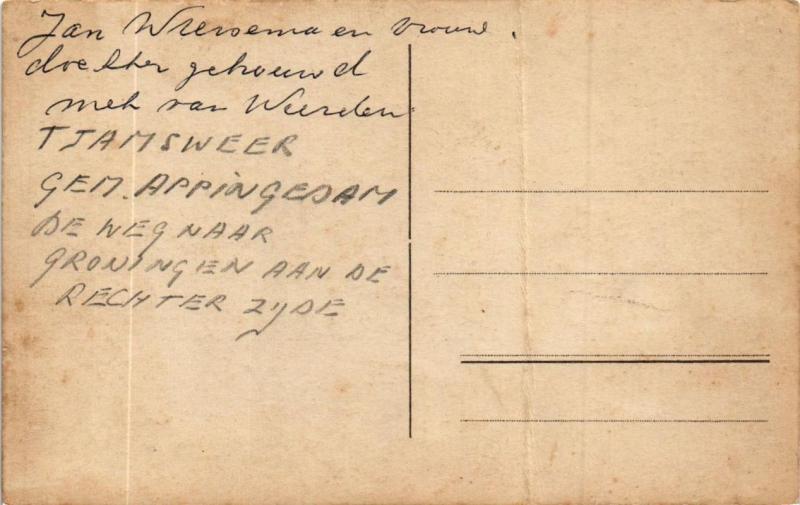 Jan Wiersema en vrouw.
dochter getrouwd
met van Weerden
TJAMSWEER
GEM. APPINGEDAM
DE WEG NAAR
GRONINGEN AAN DE
RECHTER ZIJDE